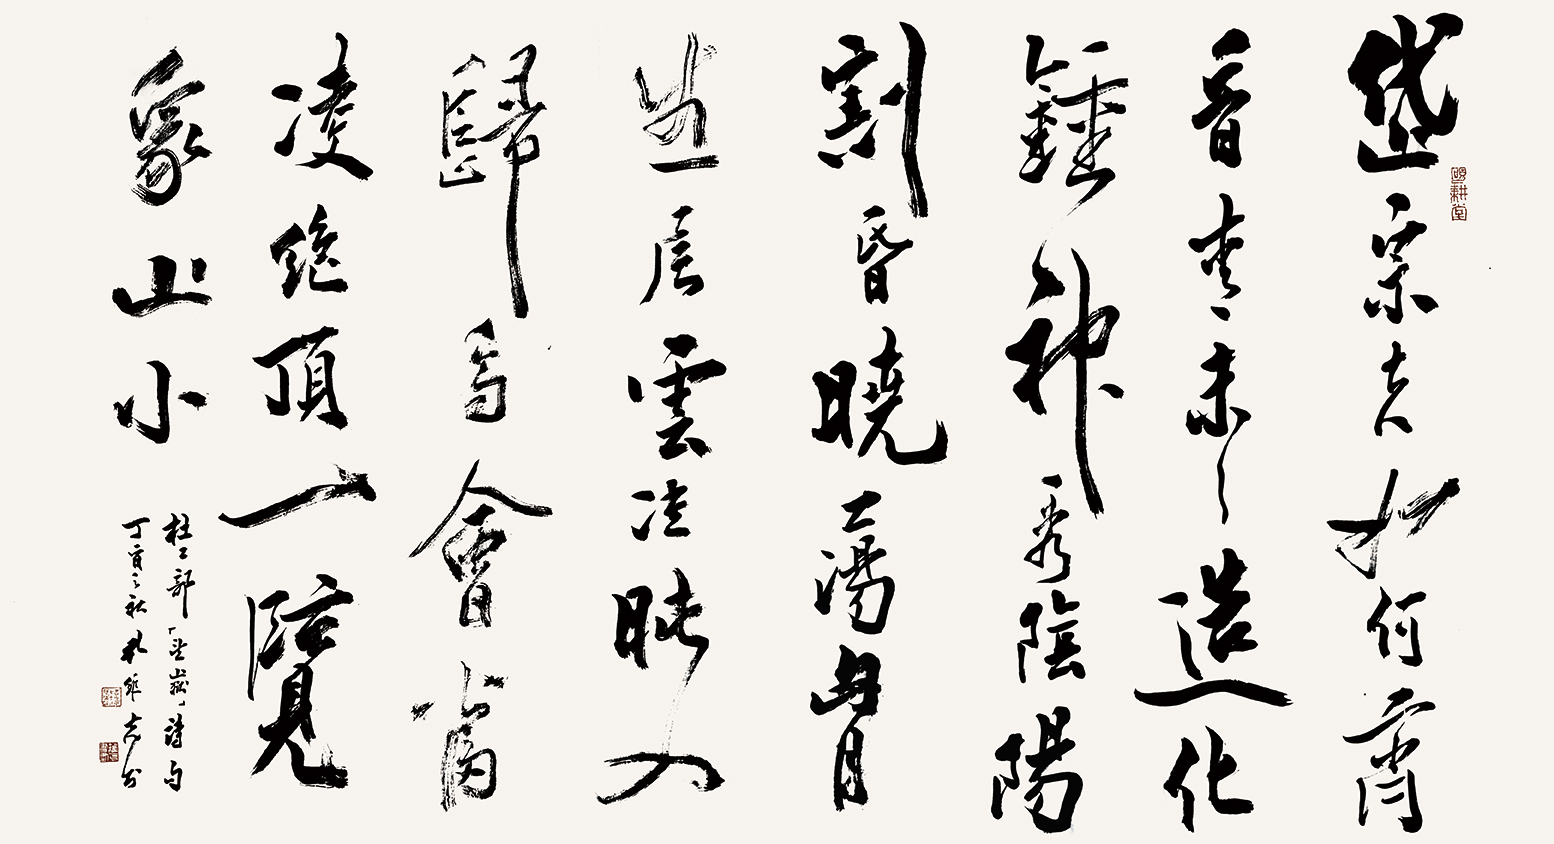 岱宗夫如何齊
魯青未了造化
鍾神秀陰陽
割昏曉蕩胷
生層雲決眥入
歸鳥會當
凌絕頂一覽
衆山小
杜工部「望嶽」詩句
丁亥之秋孔維克書
硯耕堂